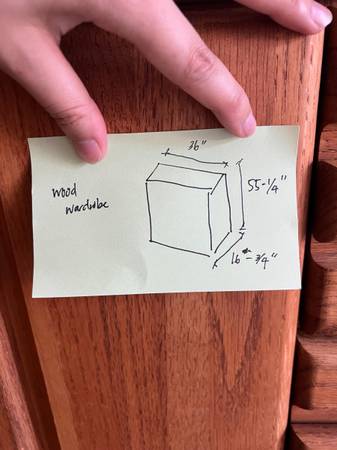 36"
wood
wardrobe
55-1/4"
16"-3/4"